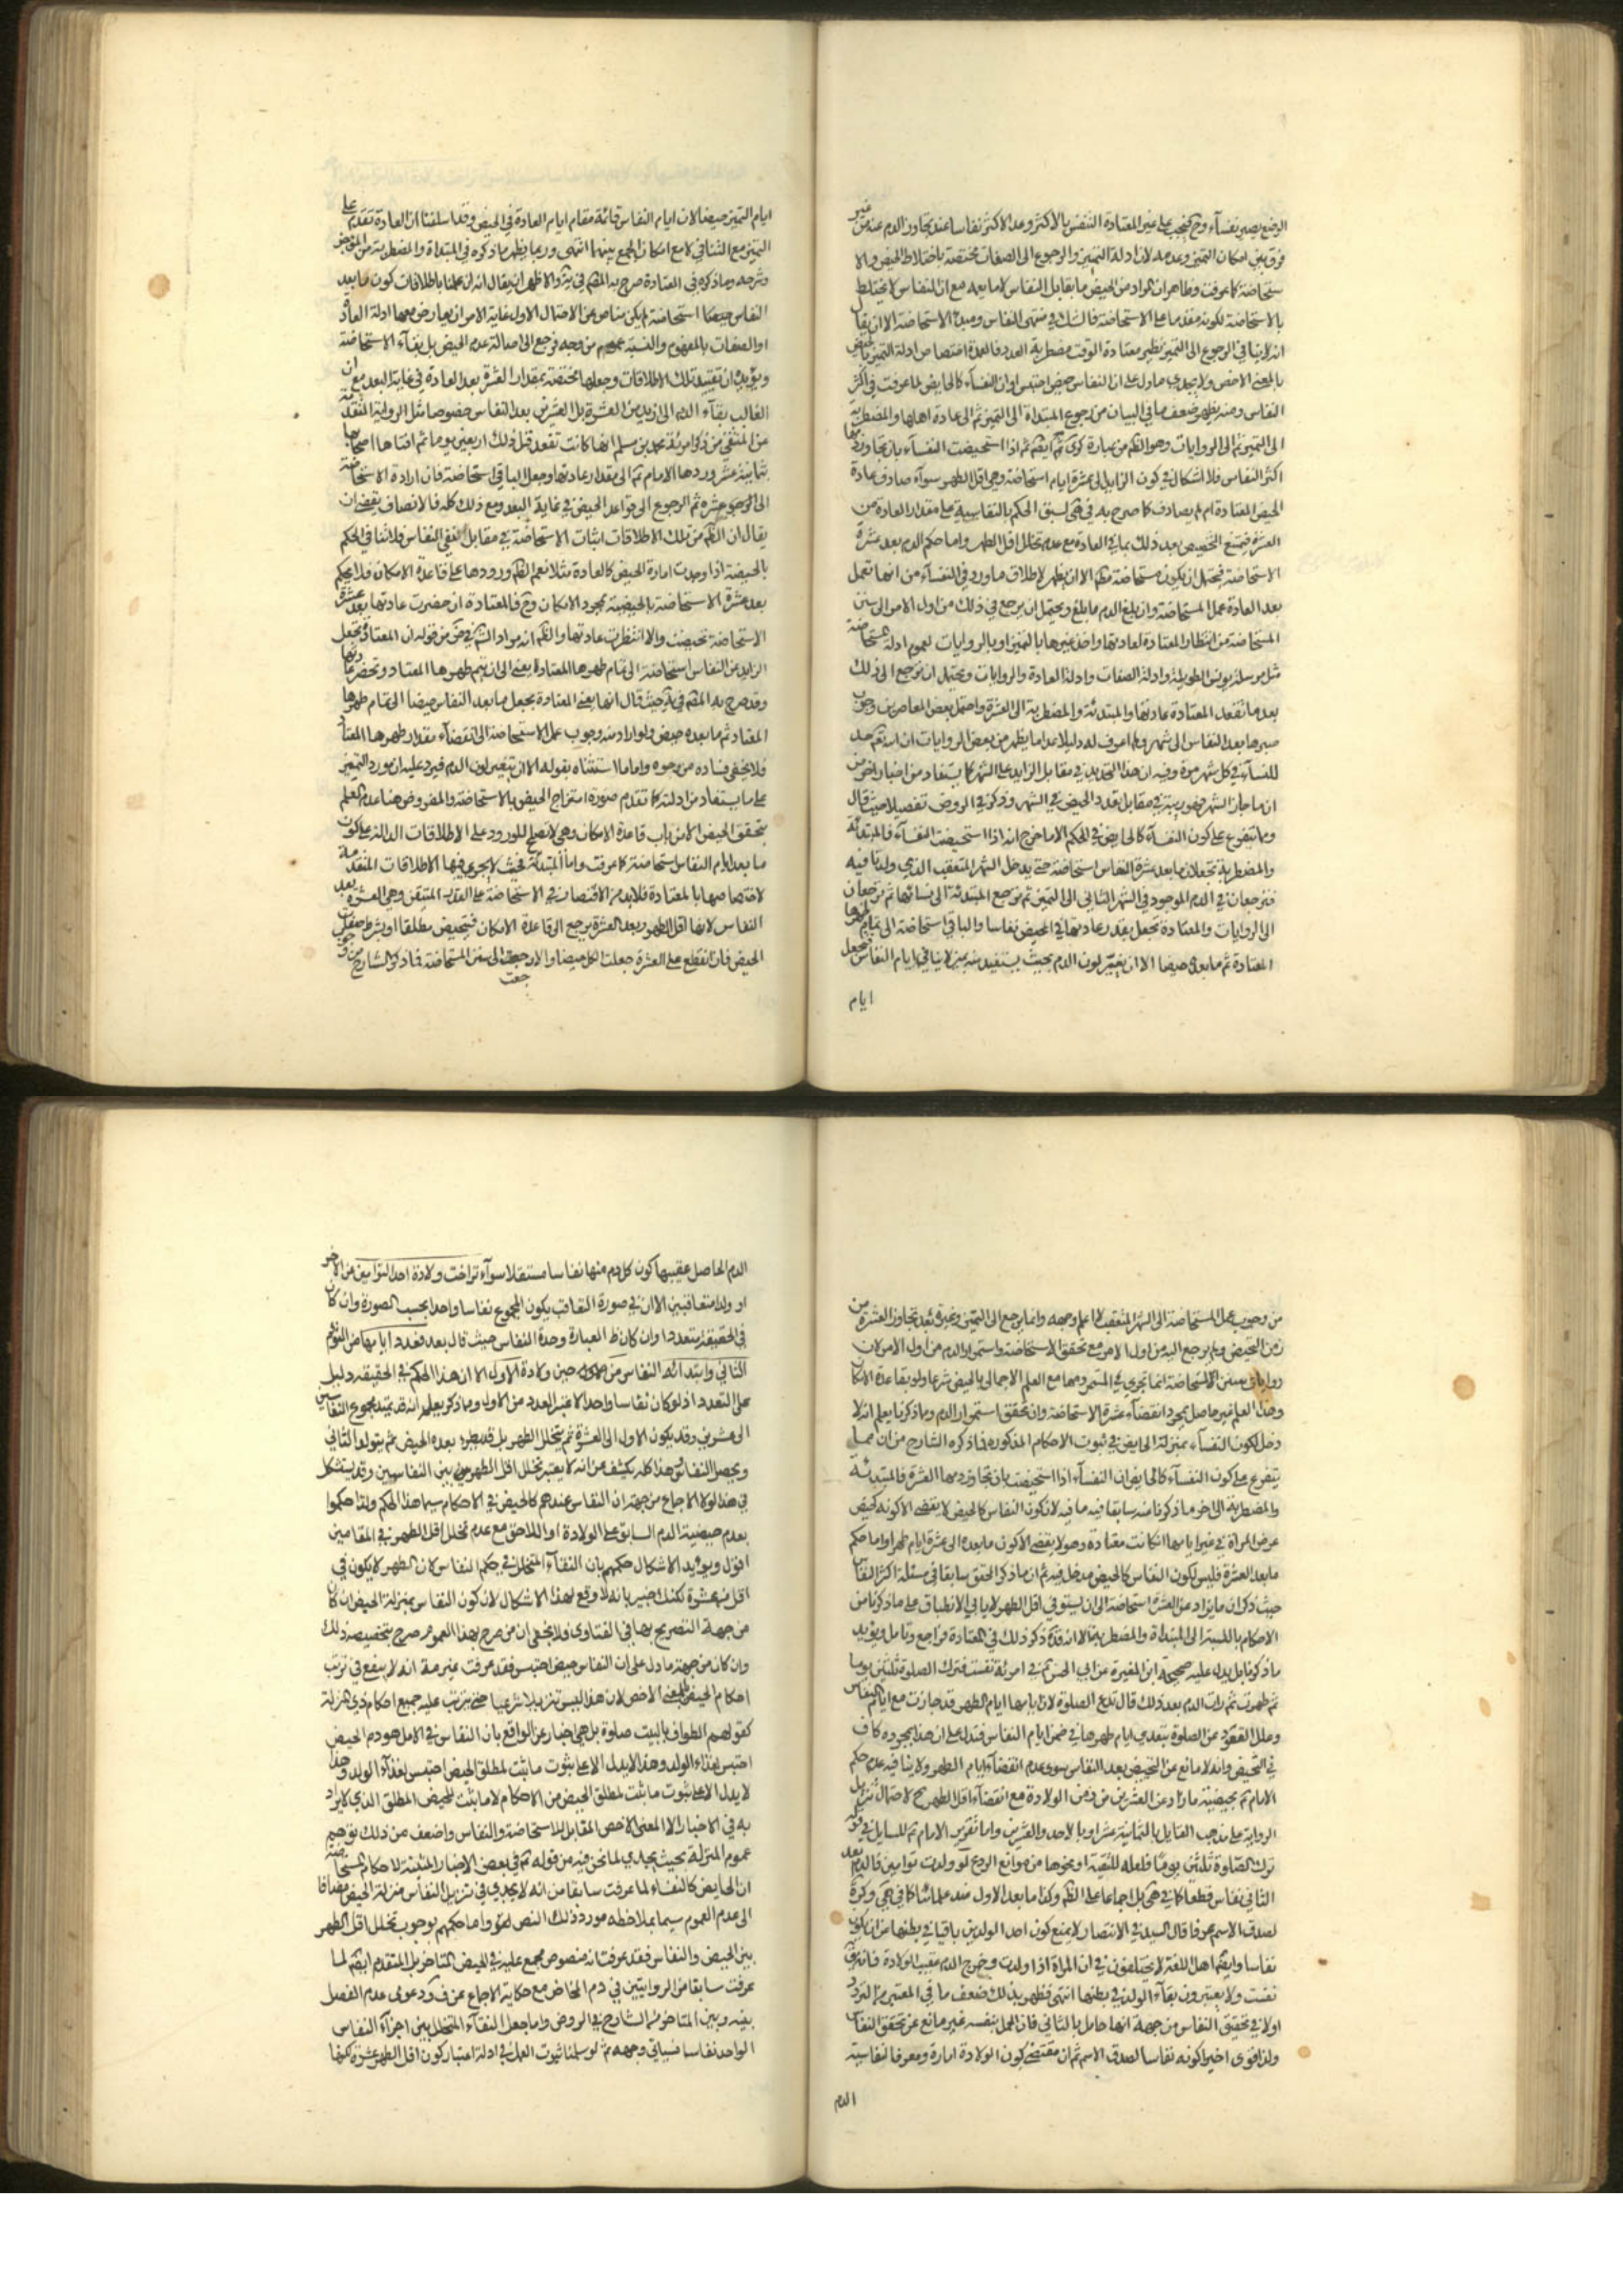 الوضع يصير نفسآء وح فيجب على غير المعتادة التنفس بالأكثر وعد الاكثر نفاسا عند تجاوز الدم عنه من غير
فرق بين امكان التميز وعدمه لان ادلة التميز والرجوع الى الصفات مختصة باختلاط الحيض والا
ستحاضة كما عرفت وظاهر ان المراد من الحيض ما يقابل النفاس لا ما يعمه مع ان النفاس لا يختلط
بالاستحاضة لكونه مقدما على الاستحاضة فالشك في منتهى النفاس ومبدء الاستحاضة الا ان يقال
انه لا ينافي الرجوع الى التميز نظير معتادة الوقت مضطربة العدد فالعمدة اختصاص ادلة التميز بالحيض
بالمعنى الاخص ولا يجدي ما دل على ان النفاس حيض احتبس او ان النفسآء كالحايض لما عرفت في اكثر
النفاس ومنه يظهر ضعف ما في البيان من رجوع المبتداة الى التميز ثم الى عادة اهلها والمضطربة
الى التميز ثم الى الروايات وهو الظم من عبارة كرى ثم اذا استحيضت النفسآء بان تجاوز دمها
اكثر النفاس فلا اشكال في كون الزايد الى عشرة ايام استحاضة وهي اقل الطهر سوآء صادف عادة
الحيض المعتادة ام لم يصادف كما صرح به في هى لسبق الحكم بالنفاسية على مقدار العادة من
العشرة فيمتنع التحيض بعد ذلك بما في العادة مع عدم تخلل اقل الطهر واما حكم الدم بعد عشرة
الاستحاضة فيحتمل ان يكون مستحاضة مطلقا الا ان يطهر لاطلاق ما ورد في النفسآء من انها تعمل
بعد العادة عمل المستحاضة وان بلغ الدم ما بلغ ويحتمل ان يرجع في ذلك من اول الامر الى سنن
المستحاضة من انتظار المعتادة لعادتها واخذ غيرها بالتميز او بالروايات لعموم ادلة المستحاضة
مثل مرسلة يونس الطويلة وادلة الصفات وادلة العادة والروايات ويحتمل ان ترجع الى ذلك
بعد ما تقعد المعتادة عادتها والمبتدئة والمضطربة الى العشرة واحتمل بعض المعاصرين وجوب
صبرها بعد النفاس الى شهر ولم اعرف له دليلا عدا ما يظهر من بعض الروايات ان الله تعالى حد
للنسآء في كل شهر مرة وفيه ان هذا التحديد في مقابل الزايد على الشهر كما يستفاد من اخبار اخر من
ان ما جاز الشهر فهو ريبة في مقابل تعدد الحيض في الشهر وذكر في الروض تفصيلا حيث قال
ومما يتفرع على كون النفسآء كالحايض في الحكم الا ما خرج انه اذا استحيضت النفسآء فالمبتدئة
والمضطربة تجعلان ما بعد عشرة النفاس استحاضة حتى يدخل الشهر المتعقب الذي ولدتا فيه
فترجعان في الدم الموجود في الشهر الثاني الى التميز ثم ترجع المبتدئة الى نسائها ثم ترجعان
الى الروايات والمعتادة تجعل بقدر عادتها في الحيض نفاسا والباقي استحاضة الى تمام طهرها
المعتادة ثم ما بعده حيضا الا ان يتغير لون الدم بحيث يستفيد منه تميز لا ينافي ايام النفاس فتجعل
ايام
ايام التميز حيضا لان ايام النفاس قائمة مقام ايام العادة في الحيض وقد اسلفنا ان العادة تقدم على
التميز مع التنافي لا مع امكان الجمع بينهما انتهى وربما يظهر ما ذكره في المبتداة والمضطربة من الموجز
وشرحه وما ذكره في المعتادة صرح به المص في ير والاظهر ان يقال انه ان عملنا باطلاقات كون ما بعد
النفاس حيضا استحاضة لم يكن مناص عن الاحتمال الاول غاية الامر ان يعارض معها ادلة العادة
او الصفات بالمفهوم والنسبة عموم من وجه فيرجع الى اصالة عدم الحيض بل بقآء الاستحاضة
ويؤيده ان تقييد تلك الاطلاقات وجعلها مختصة بمقدار العشرة بعد العادة في غاية البعد مع ان
الغالب بقآء الدم الى ازيد من العشرة بل العشرين بعد النفاس خصوصا مثل الرواية المتقدمة
عن المنتقى من ذكر امرئة محمد بن مسلم انها كانت تقعد قبل ذلك اربعين يوما ثم افتاها اصحابها
بثمانية عشر وردها الامام ع الى مقدار عادتها وجعل الباقي استحاضة فان ارادة الاستحاضة
الى الرجوع عشرة ثم الرجوع الى قواعد الحيض في غاية البعد ومع ذلك كله فالانصاف يقتضي ان
يقال ان الظم من تلك الاطلاقات اثبات الاستحاضة في مقابل نفي النفاس فلا تنافي الحكم
بالحيضية اذا وجدت امارة الحيض كالعادة مثلا نعم الظم ورودها على قاعدة الامكان فلا يحكم
بعد عشرة الاستحاضة بالحيضية بمجرد الامكان وح فالمعتادة ان حضرت عادتها بعد عشرة
الاستحاضة تحيضت والا انتظرت عادتها والظم انه مراد الش في ض من قوله ان المعتادة تجعل
الزايد عن النفاس استحاضة الى تمام طهرها المعتادة يعني الى ان يتم طهرها المعتاد وتحضر عادتها
وقد صرح به المص في ية حيث قال انها يعني المعتادة يجعل ما بعد النفاس حيضا الى تمام طهرها
المعتاد ثم ما بعده حيض ولو اراد منه وجوب عمل الاستحاضة الى انقضآء مقدار طهرها المعتاد
فلا يخفى فساده من وجوه واما ما استثناه بقوله الا ان يتغير لون الدم فيرد عليه ان مورد التميز
على ما يستفاد من ادلته كما تقدم صورة امتزاج الحيض بالاستحاضة والمفروض هنا عدم العلم
بتحقق الحيض الا من باب قاعدة الامكان وهي لا تصلح للورود على الاطلاقات الدالة على كون
ما بعد ايام النفاس استحاضة كما عرفت واما المبتدئة فحيث لا يجري فيها الاطلاقات المتقدمة
لاختصاصها بالمعتادة فلا بد من الاقتصار في الاستحاضة على القدر المتيقن وهي العشرة بعد
النفاس لانها اقل الطهر وبعد العشرة يرجع الى قاعدة الامكان فيتحيض مطلقا او بشرط صفة
الحيض فان انقطع على العشرة جعلت الكل حيضا والا رجعت الى سنن المستحاضة فما ذكره الشارح من
جعت
من وجوب عمل المستحاضة الى الشهر المتعقب لا اعلم وجهه وانما يرجع الى التميز وغيره بعد تجاوز العشرة من
زمن التحيض ولم يرجع اليه من اول الامر مع تحقق الاستحاضة واستمرار الدم من اول الامر لان
روايات سنن الاستحاضة انما تجري في المستمر دمها مع العلم الاجمالي بالحيض شرعا ولو بقاعدة الامكان
وهذا العلم غير حاصل بمجرد انقضآء عشرة الاستحاضة وان تحقق استمرار الدم ومما ذكرنا يعلم انه لا
دخل لكون النفسآء بمنزلة الحايض في ثبوت الاحكام المذكورة فما ذكره الشارح من ان مما
يتفرع على كون النفسآء كالحايض ان النفسآء اذا استحيضت بان تجاوز دمها العشرة فالمبتدئة
والمضطربة الى اخر ما ذكرنا منه سابقا فيه ما فيه لان كون النفاس كالحيض لا يقتضي الا كونه كحيض
عرض المراة في غير ايامها ان كانت معتادة وهو لا يقتضي الا كون ما بعده الى عشرة ايام طهرا واما حكم
ما بعد العشرة فليس لكون النفاس كالحيض مدخل فيه ثم ان ما ذكر المحقق سابقا في مسئلة اكثر النفاس
حيث ذكر ان ما يزاد عن العشرة استحاضة الى ان يستوفي اقل الطهر لا يابى الانطباق على ما ذكرنا من
الاحكام بالنسبة الى المبتداة والمضطربة بل الا انه قده ذكر ذلك في المعتادة فراجع وتامل ويؤيد
ما ذكرنا بل يدل عليه صحيحة ابن المغيرة عن ابي الحسن ع في امرئة نفست فتركت الصلوة ثلثين يوما
ثم طهرت ثم رات الدم بعد ذلك قال تدع الصلوة لان ايامها ايام الطهر قد جازت مع ايام النفاس
وعلل القعود عن الصلوة بتعدي ايام طهرها في ضمن ايام النفاس فتدل على ان هذا بمجرده كاف
في التحيض وانه لا مانع عن التحيض بعد النفاس سوى عدم انقضآء ايام الطهر ولا ينافيه عدم حكم
الامام ع بحيضية ما زاد عن العشرين من زمن الولادة مع انقضآء اقل الطهر ح لاحتمال تنزيل
الرواية على مذهب القايل بالثمانية عشر او بالاحد والعشرين واما تقرير الامام ع للسايل في قوله
ترك الصلوة ثلثين يوما فلعله للتقية او نحوها من موانع الردع لو ولدت توامين فالدم بعد
الثاني نفاس قطعا كما في هى بل اجماعا على الظم وكذا ما بعد الاول عند علمائنا كما في هى وكرة
لصدق الاسم عرفا قال السيد في الانتصار لا يمنع كون احد الولدين باقيا في بطنها من ان يكون
نفاسا وايضا اهل اللغة لا يختلفون في ان المراة اذا ولدت وخرج الدم عقيب الولادة فانه يقال
نفست ولا يعتبرون بقآء الولد في بطنها انتهى فظهر بذلك ضعف ما في المعتبر من التردد
اولا في تحقيق النفاس من جهة انها حامل بالثاني فان الحمل بنفسه غير مانع عن تحقق النفاس
ولذا قوى اخيرا كونه نفاسا لصدق الاسم ثم ان مقتضى كون الولادة امارة ومعرفا لنفاسية
الدم
الدم الحاصل عقيبها كون كل دم منها نفاسا مستقلا سوآء تراخت ولادة احد التوامين عن الاخر
او ولدا متعاقبين الا ان في صورة التعاقب يكون المجموع نفاسا واحدا بحسب الصورة وان كان
في الحقيقة متعددا وان كان ظ العبارة وحدة النفاس حيث قال بعد فعدد ايامها من التوام
الثاني وابتدائه النفاس من حين ولادة الاول الا ان هذا الحكم في الحقيقة دليل
على التعدد اذ لو كان نفاسا واحدا لاعتبر العدد من الاول ومما ذكر يعلم انه قد يمتد مجموع النفاسين
الى عشرين وقد يكون الاول الى العشرة ثم يتخلل الطهر بل قد يطرء بعده الحيض ثم يتولد الثاني
ويحصل النفاس وهذا كله يكشف عن انه لا يعتبر تخلل اقل الطهر بين النفاسين وقد يستشكل
في هذا لولا الاجماع من جهة ان النفاس عندهم كالحيض في الاحكام سيما هذا الحكم ولذا حكموا
بعدم حيضية الدم السابق على الولادة او اللاحق مع عدم تخلل اقل الطهر في المقامين
اقول ويؤيد الاشكال حكمهم بان النقآء المتخلل في حكم النفاس لان الطهر لا يكون في
اقل من عشرة لكنك خبير بانه لا وقع لهذا الاشكال لان كون النفاس بمنزلة الحيض ان كان
من جهة التصريح بها في الفتاوى فلا يخفى ان من صرح بهذا العموم صرح بتخصيصه ذلك
وان كان من جهة ما دل على ان النفاس حيض احتبس فقد عرفت غير مرة انه لا ينفع في ترتب
احكام الحيض بالمعنى الاخص لان هذا ليس تنزيلا شرعيا حتى يترتب عليه جميع احكام ذي المنزلة
كقولهم الطواف بالبيت صلوة بل هي اخبار عن الواقع بان النفاس في الاصل هو دم الحيض
احتبس لغذاء الولد وهذا لا يدل الا على ثبوت ما ثبت لمطلق الحيض احتبس لغذآء الولد وهذا
لا يدل الا على ثبوت ما ثبت لمطلق الحيض من الاحكام لا ما ثبت للحيض المطلق الذي لا يراد
به في الاخبار الا المعنى الاخص المقابل للاستحاضة والنفاس واضعف من ذلك توهم
عموم المنزلة بحيث يجدي لما نحن فيه من قوله ع في بعض الاخبار المثبتة لاحكام المستحاضة
ان الحايض كالنفساء لما عرفت سابقا من انه لا يجدي في تنزيل النفاس منزلة الحيض مضافا
الى عدم العموم سيما بملاحظه مورد ذلك النص واما حكمهم بوجوب تخلل اقل الطهر
بين الحيض والنفاس فقد عرفت انه منصوص مجمع عليه في الحيض المتاخر بل المتقدم ايضا لما
عرفت سابقا من الروايتين في دم المخاض مع حكاية الاجماع عن ف ودعوى عدم الفصل
بينه وبين المتاخر من الشارح في الروض واما جعل النقآء المتخلل بين اجزآء النفاس
الواحد نفاسا فسياتي وجهه ثم لو سلمنا ثبوت العمل في ادلة اعتبار كون اقل الطهر عشرة لكنها